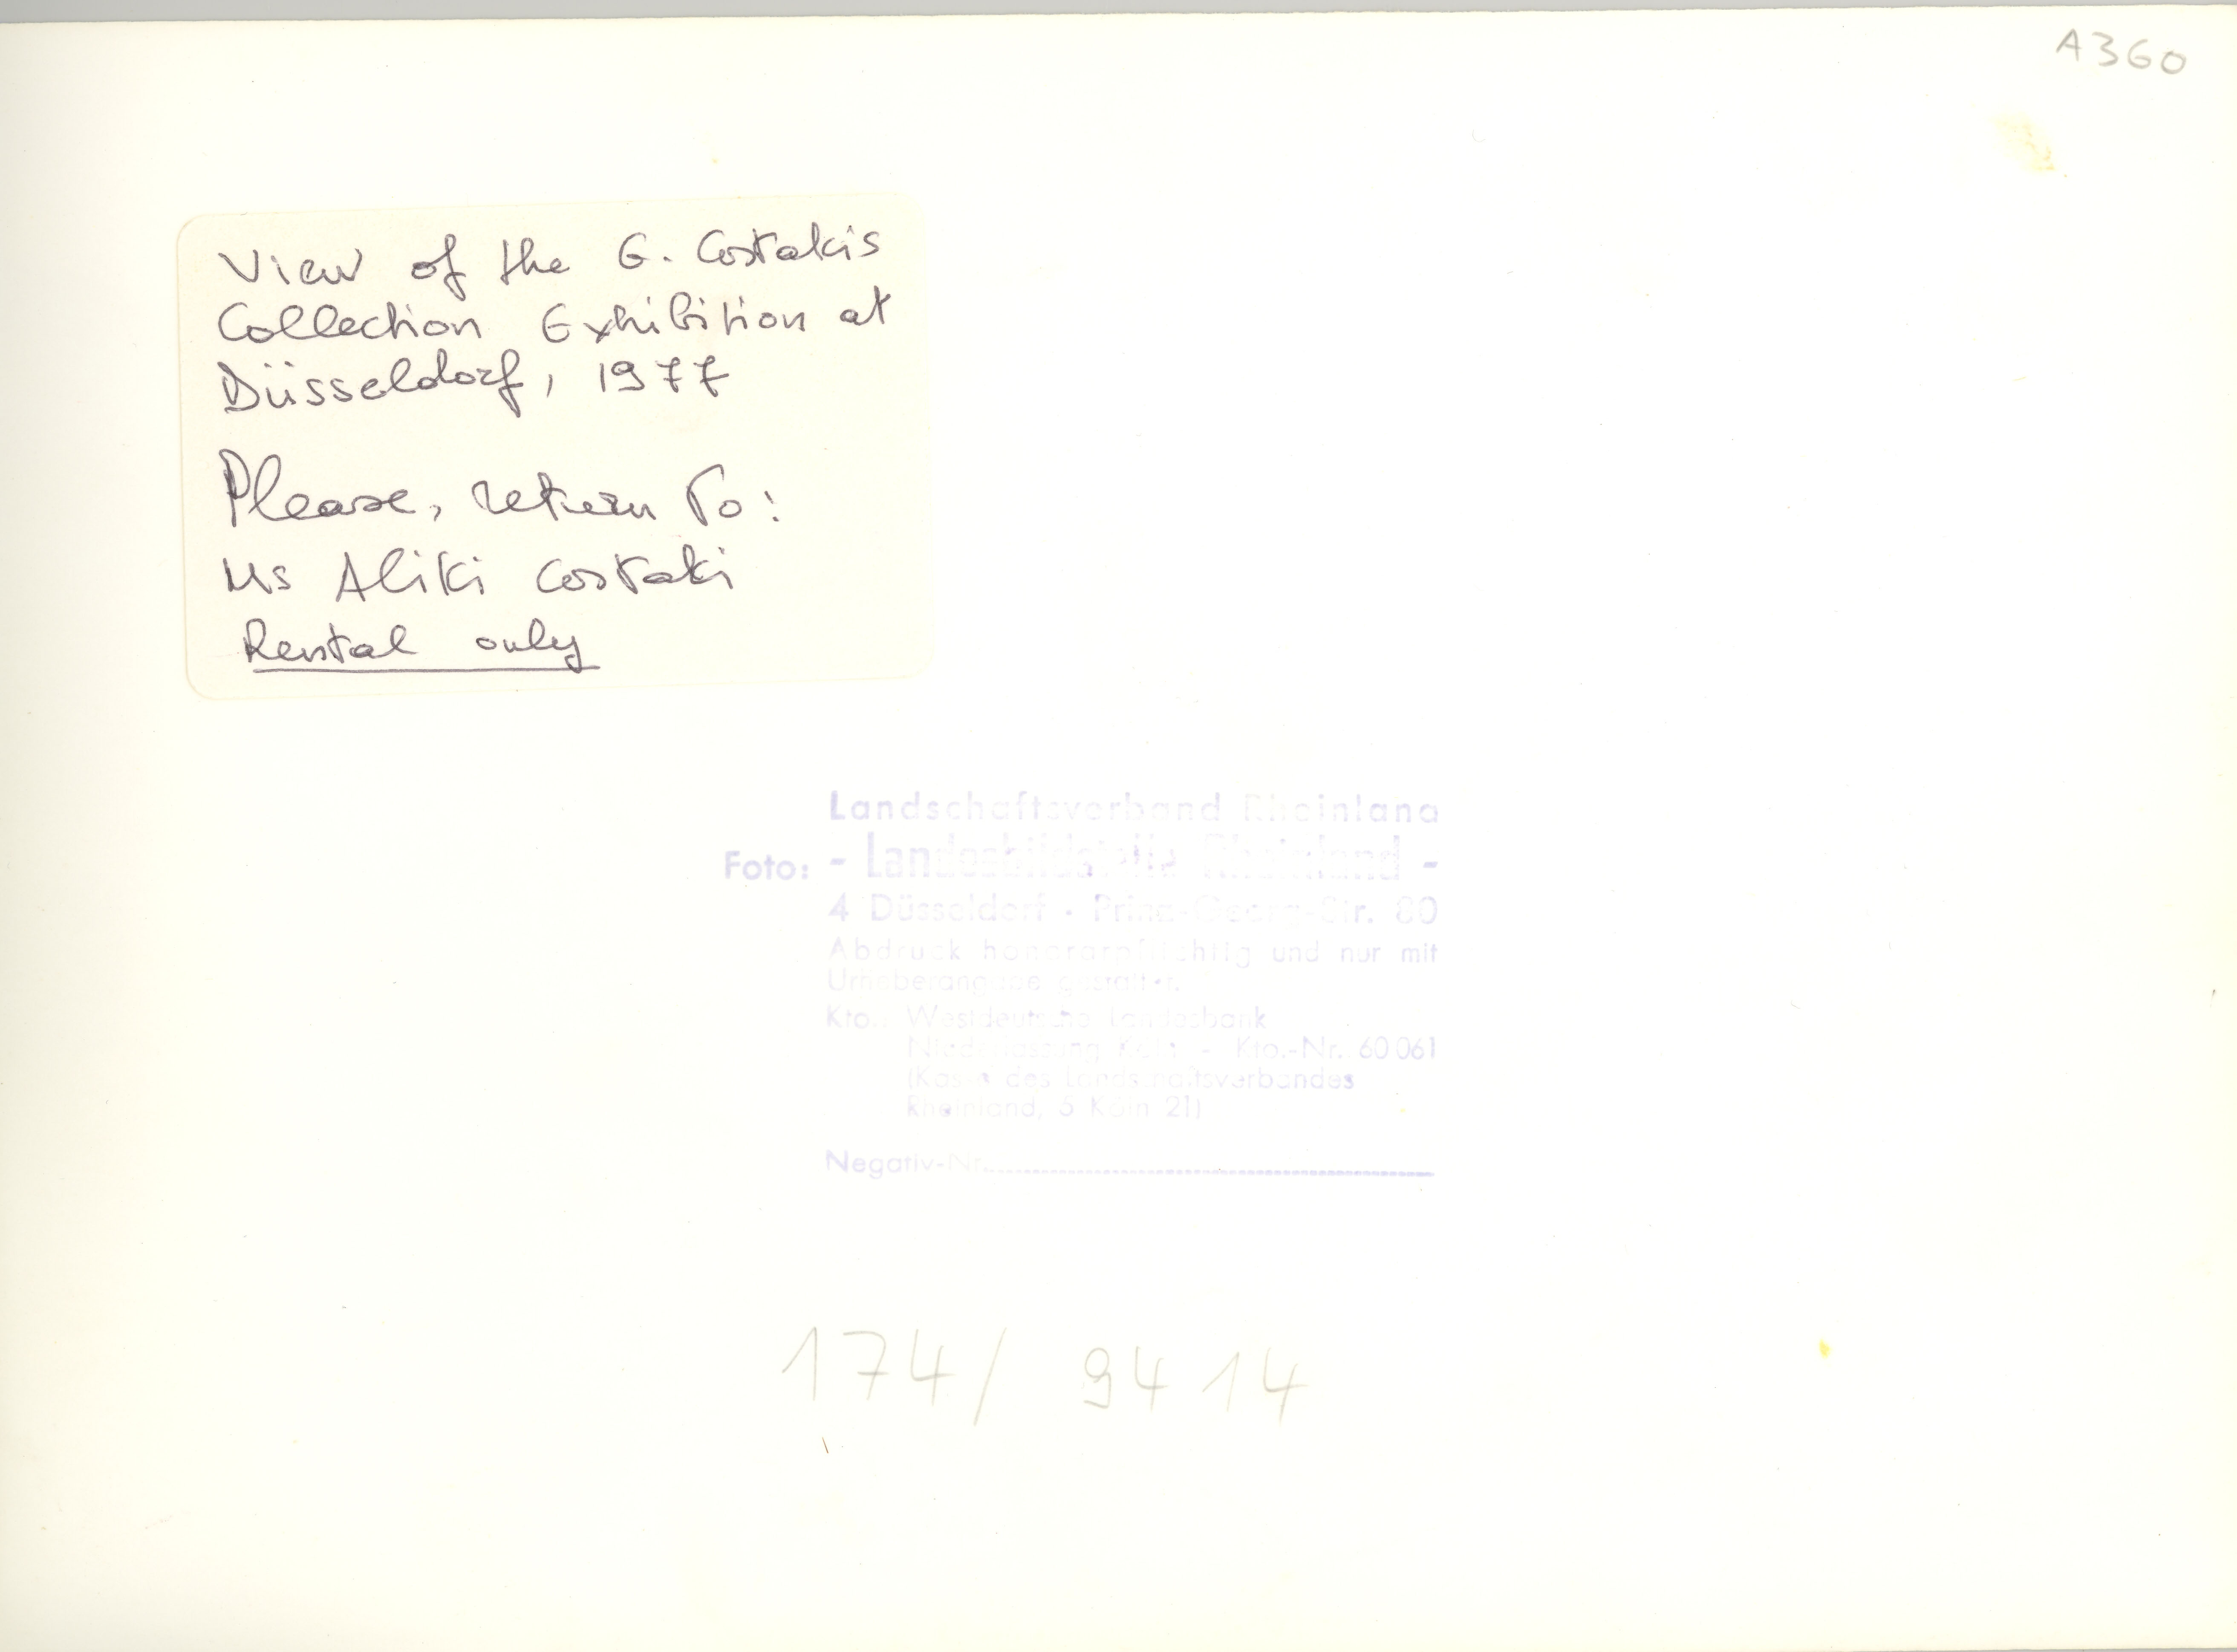 A360
View of the G. Costakis
Collection Exhibition at
Düsseldorf, 1977
Please, return To:
Ms Aliki Costaki
Rental only
Landschaftsverband Rheinland
Foto: - Landesbildstelle Rheinland -
4 Düsseldorf · Prinz-Georg-Str. 80
Abdruck honorarpflichtig und nur mit
Urheberangabe gestattet.
Kto.: Westdeutsche Landesbank
Niederlassung Köln - Kto.-Nr. 60 061
(Kasse des Landschaftsverbandes
Rheinland, 5 Köln 21)
Negativ-Nr.
174/ 9414